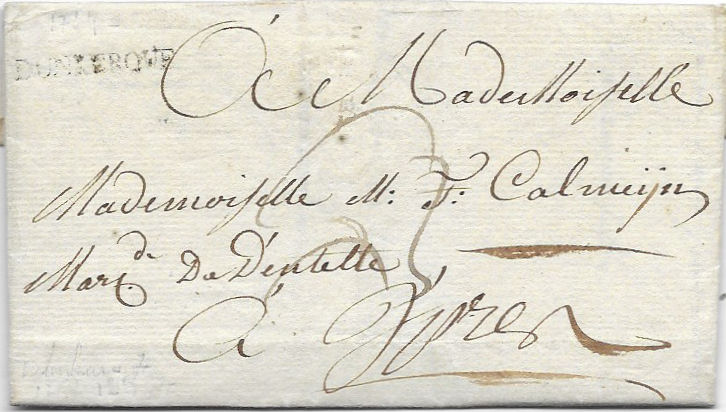 DUNKERQUE
A Mademoiselle
3
Mademoiselle M: F: Calmeijn
Mar.de De Dentelle
A Ypres